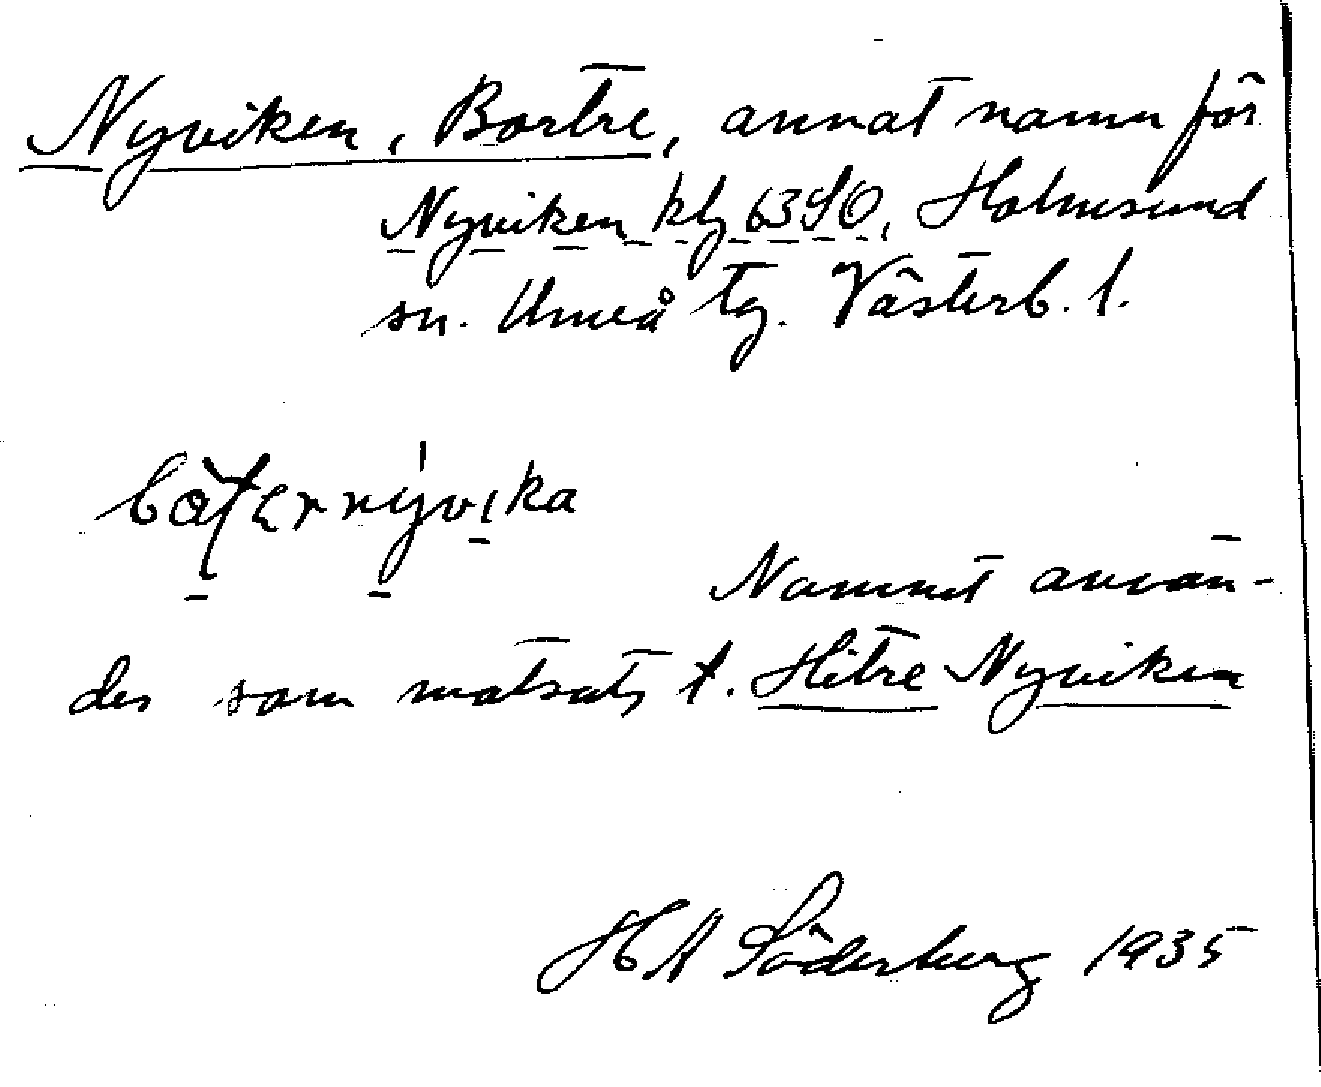 Nyviken, Bortre, annat namn för
Nyviken kbg 63 SO, Holmsund
sn. Umeå tg. Västerb. l.
Namnet använ-
des som motsats t. Hitre Nyviken
H A Söderberg 1935